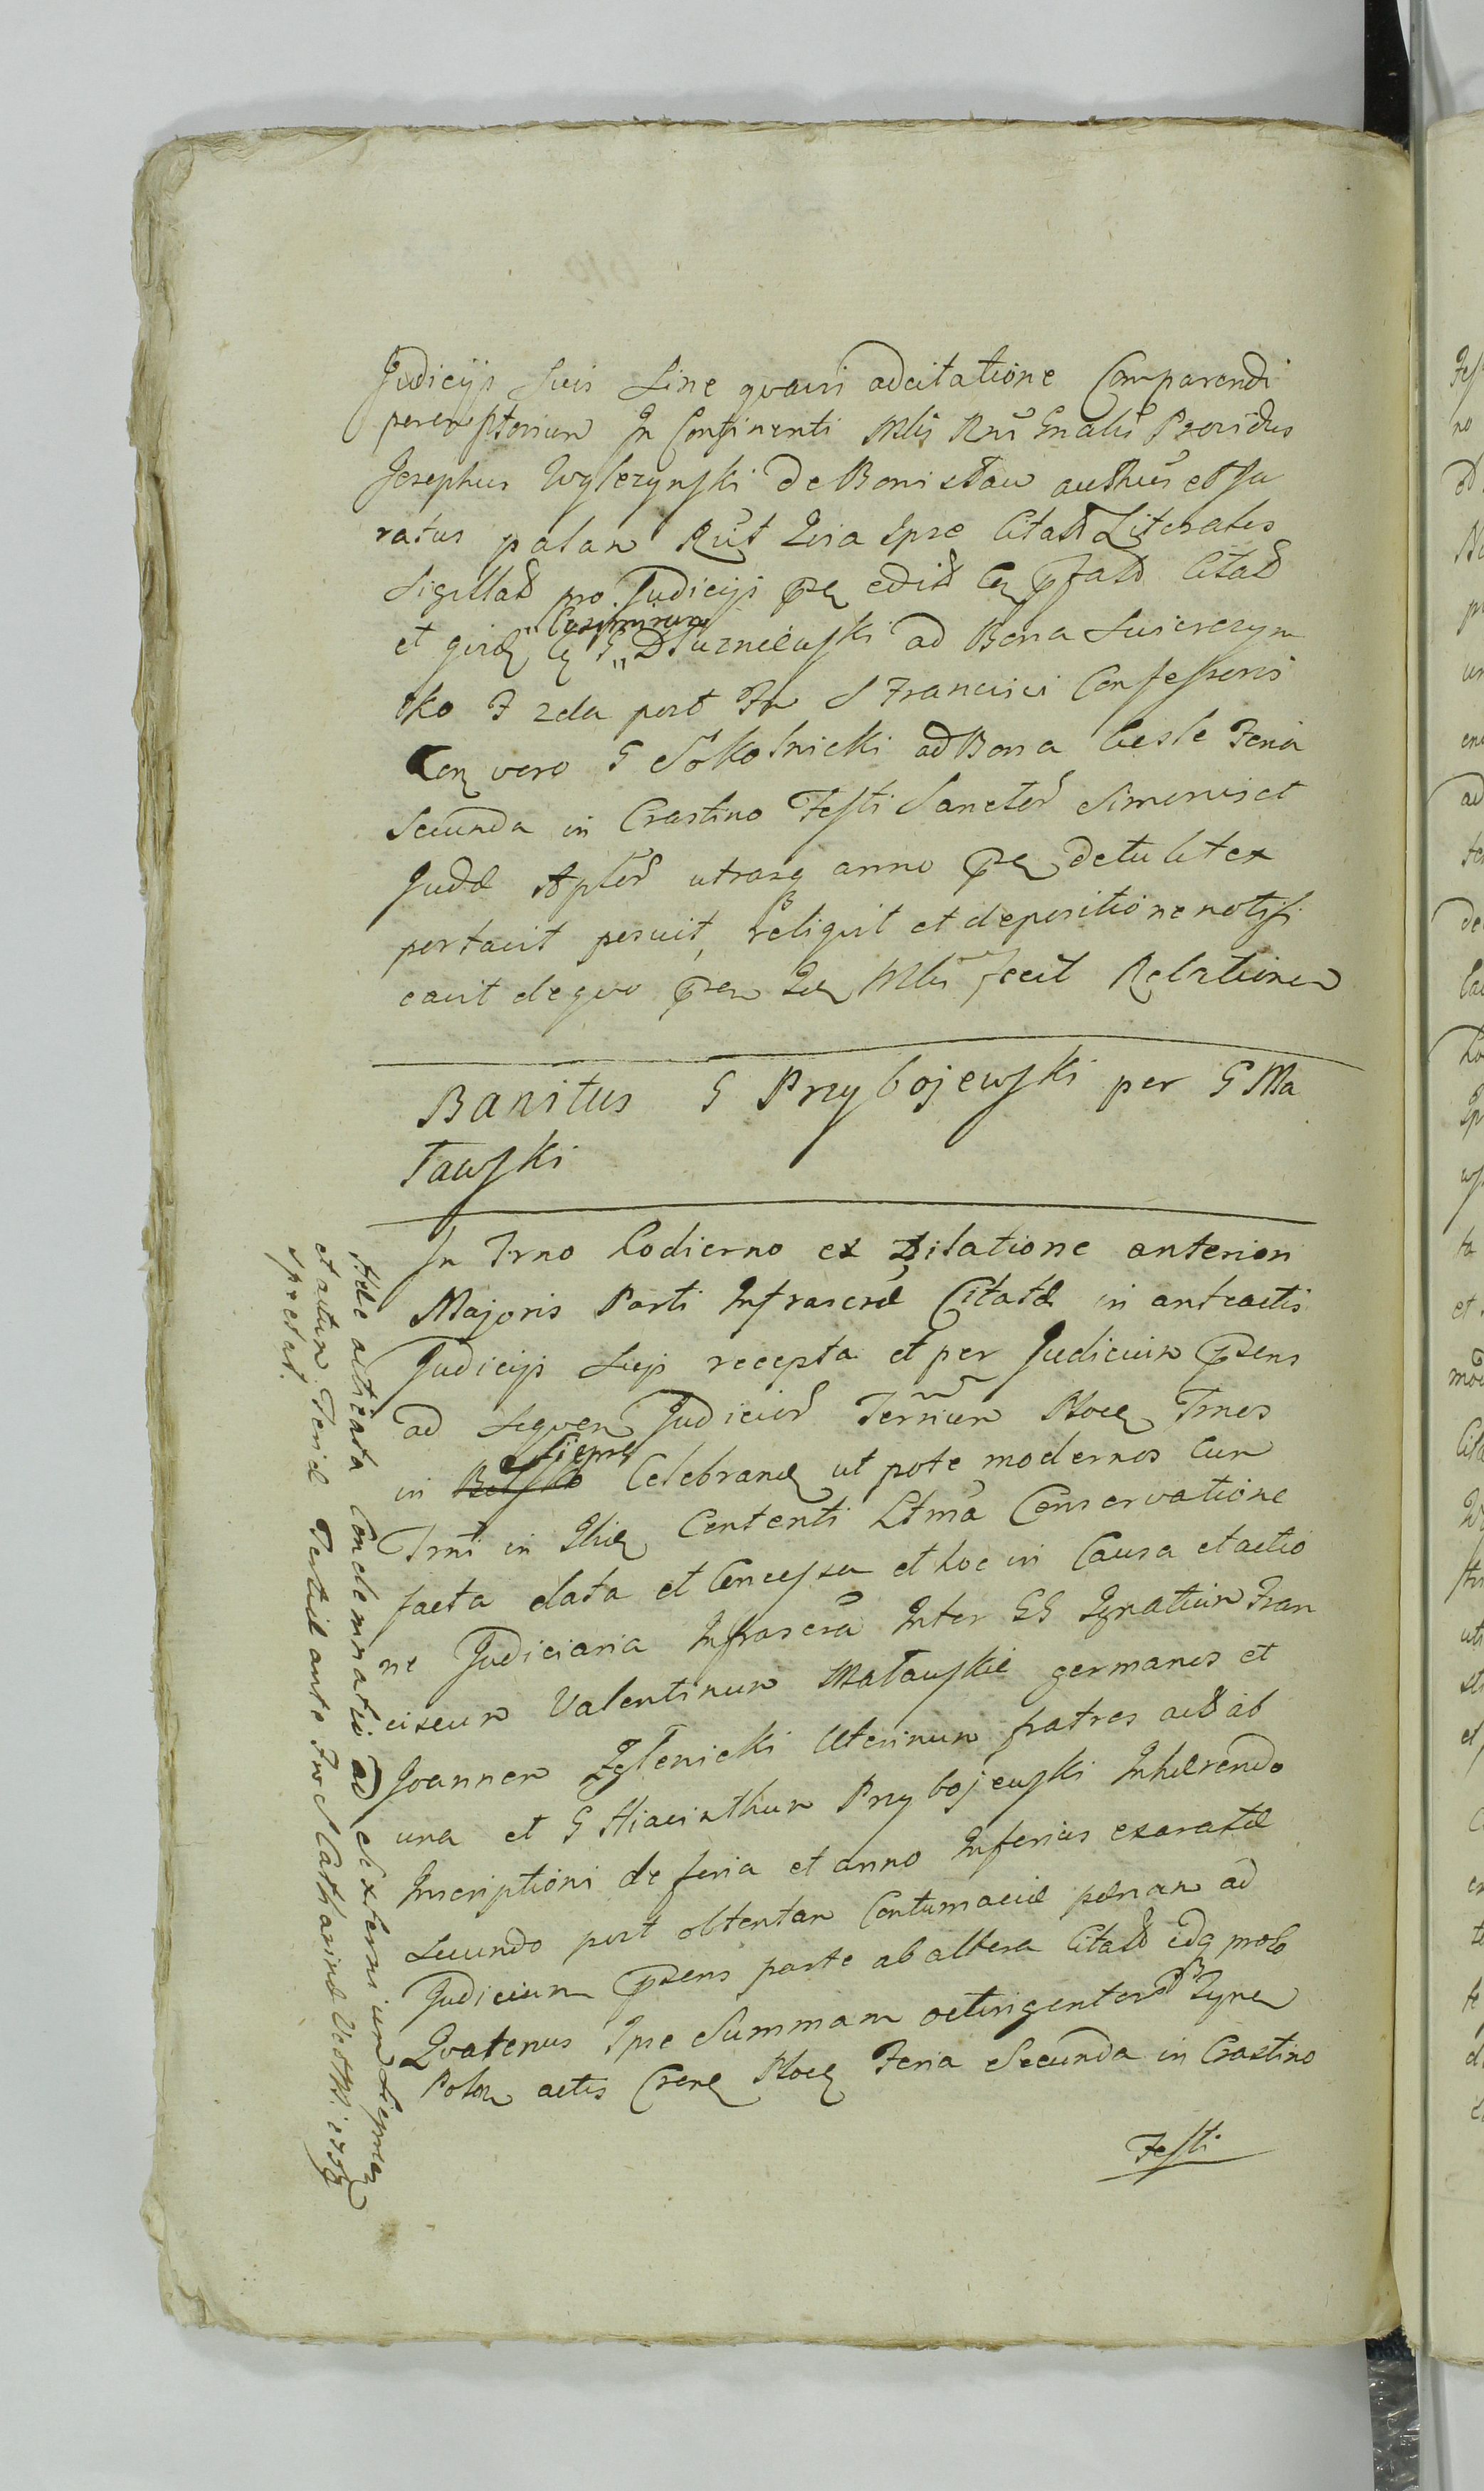 Judicijs suis sine quavis adcitatione Comparendi
peremptorium In Continenti Mlis Rni Gnalis Providus
Josephus Wylezynski de Bonislaw authus et Ju
ratus palam Rcit Quia Ipse Citaōes Literales
Sigillad pro Judicijs edit Citad
et quid Casimirum G Dłuzniewski ad Bona Swierczyn
ko F 2da post Fm S Francisci Confessoris
vero G Sokolnicki ad Bona Ciesle Feria
Secunda in Crastino Festi Sanctor Simonis et
Judæ Aplor utrasq anno detulit ex
portavit posuit, reliquit et de positione notifi
cavit de quo Mlis fecit Relationem
Banitus G Przybojewski per G Ma
ławski
In Trno hodierno ex Dilatione anteriori
Majoris Parti Infrascræ Citatæ in anteactis
Judicijs Suis recepta et per Judicium
ad Sequen Judicior Terrium Ploce Trnos
in Belsko Siepre Celebrand ut pote modernos cum
Trni in Contenti Ltma Conservatione
facta data et Concessa et hoc in Causa et actio
ne Judiciaria Infrascra Inter GG Ignatium Fran
ciscum Valentinum Małauskie germanos et
Joannem Zglenicki Uterinum fratres act ab
una et G Hiacinthum Przybojewski Inhærendo
Inscriptioni de feria et anno Inferius exaratæ
Secundo post obtentam Contumaciæ pænam ad
Judicium parte ab altera Citat idq
Quatenus Ipse Summam octingentor
Polon actis Ploce Feria Secunda in Crastino
Festi
Hæc acticata Condemnatio ad
et actum Feria Tertia ante Fm S Catharinæ
spectat.